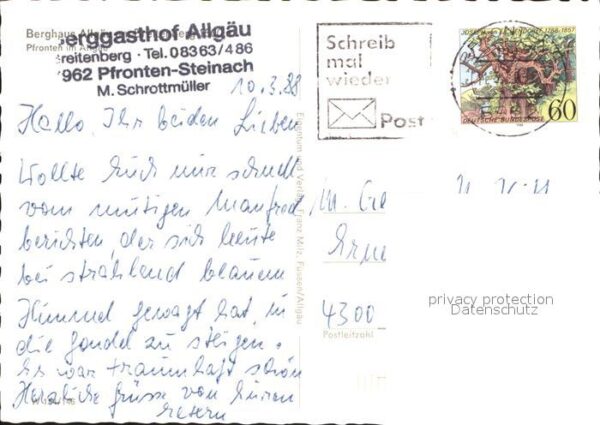 Berghaus Allgäu
Pfronten im Allgäu
Berggasthof Allgäu
Breitenberg · Tel. 08363/486
8962 Pfronten-Steinach
M. Schrottmüller
10.3.88
Hallo, Ihr beiden Lieben
Wollte Euch nur schnell
vom mutigen Manfred
berichten, der sich heute
bei strahlend blauem
Himmel gewagt hat, in
die Gondel zu steigen.
Es war traumhaft schön
Herzliche Grüsse von Euren
Eigentum und Verlag Franz Milz, Füssen/Allgäu
Schreib
mal
wieder
Post
JOSEPH 1788-1857
60
DEUTSCHE BUNDESPOST
4300
Postleitzahl
privacy protection
Datenschutz